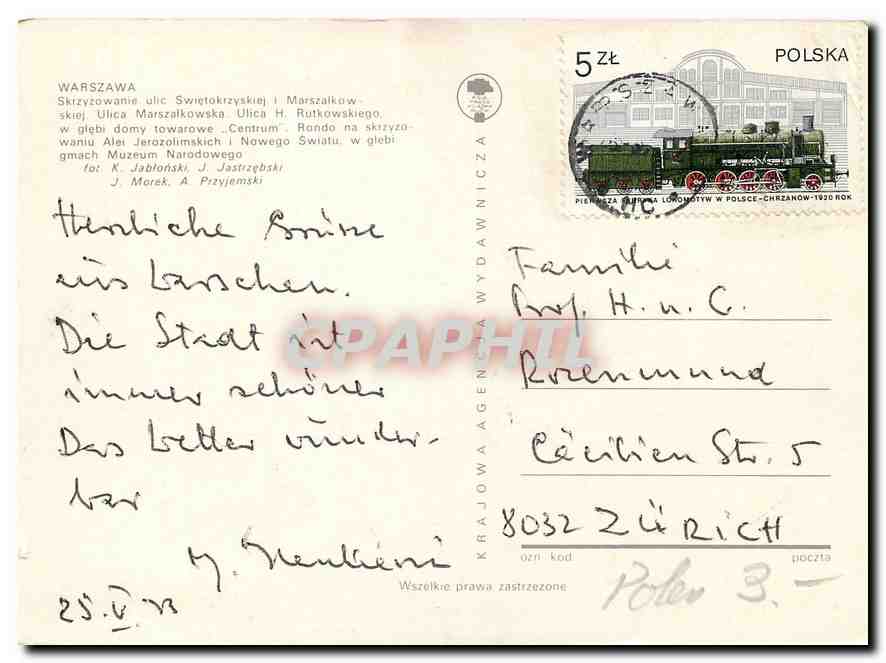 WARSZAWA
Skrzyżowanie ulic Świętokrzyskiej i Marszałkow-
skiej. Ulica Marszałkowska. Ulica H. Rutkowskiego,
w głębi domy towarowe „Centrum”. Rondo na skrzyżo-
waniu Alei Jerozolimskich i Nowego Światu, w głębi
gmach Muzeum Narodowego
fot. K. Jabłoński, J. Jastrzębski
J. Morek, A. Przyjemski
Herzliche Grüsse
aus Warschau.
Die Stadt ist
immer schöner
Das Wetter wunder-
bar
25. V.
KRAJOWA AGENCJA WYDAWNICZA
5 ZŁ
POLSKA
PIERWSZA FABRYKA LOKOMOTYW W POLSCE-CHRZANÓW-1920 ROK
Familie
Prof. H. u. C.
Rosenmund
Cäcilien Str. 5
8032 ZÜRICH
ozn kod
poczta
Wszelkie prawa zastrzeżone
Polen 3.–
CPAPHIL